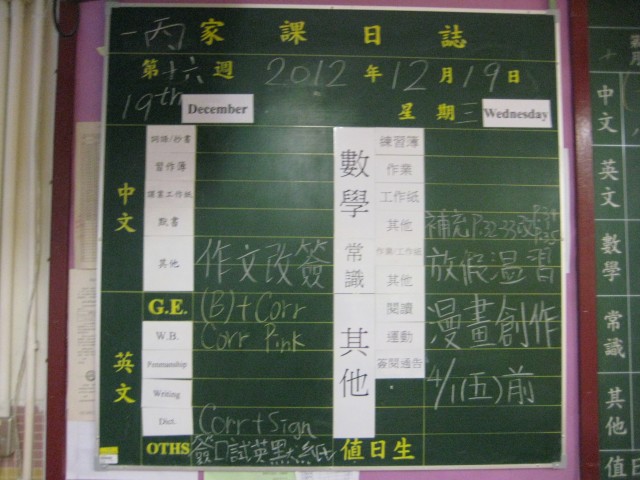 一丙 家課日誌
第十六週 2012年12月19日
19th December 星期三 Wednesday
中文
詞語/抄書
習作簿
課業工作紙
默書
其他 作文改簽
英文
G.E. (B)+Corr
W.B. Corr Pink
Penmanship
Writing
Dict. Corr+Sign
OTHS 簽口試英默紙
數學
練習簿
作業
工作紙
其他 補充P.32-33改
常識
作業/工作紙
其他 放假溫習
其他
閱讀 漫畫創作
運動
簽閱通告 4/1(五)前
值日生
中文
英文
數學
常識
其他
值日